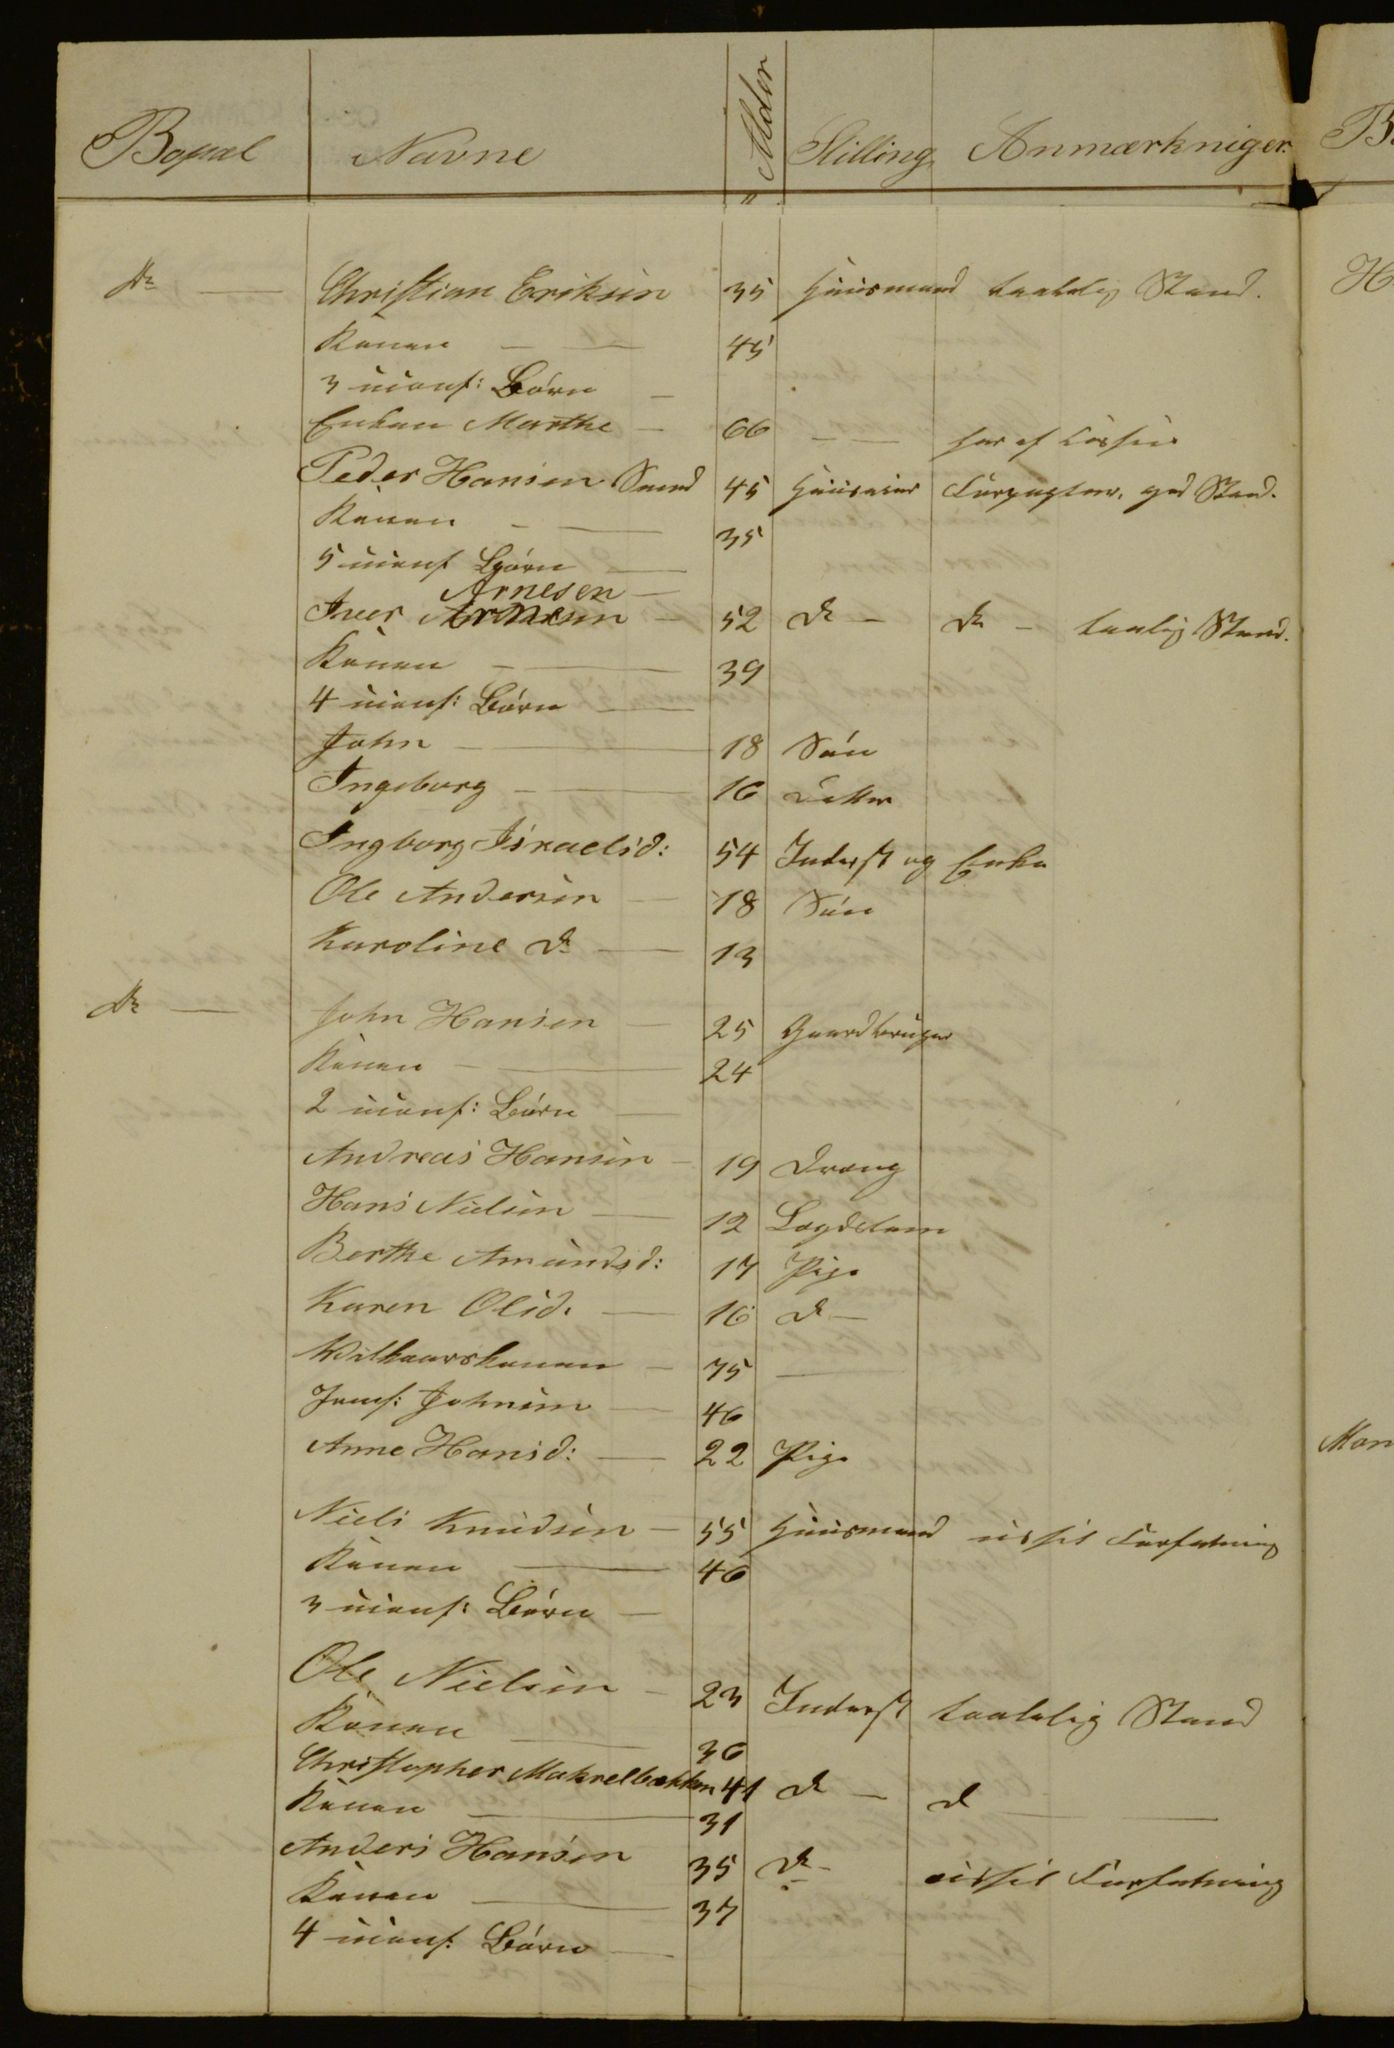 Bopæl Navne Alder Stilling Anmærkniger.
Do — Christian Eriksen 35 Huusmand taalelig Stand.
Konen — — 45
3 uconf: Børn —
Enken Marthe — 66 — — har af
Peder Hansen Smed 45 Huuseier Forpagter, god Stand.
Konen — — 35
5 uconf Børn —
Arnesen —
Iver Arnesen — 52 Do — Do — taalig Stand.
Konen — — 39
4 uconf: Børn —
John — — 18 Søn
Ingeborg — — 16 Datter
Ingborg Israelsd: 54 Inderst og Enke
Ole Andersen — 18 Søn
Karoline Do — 13
Do — John Hansen — 25 Gaardbruger
Konen — — 24
2 uconf: Børn —
Andreas Hansen — 19 Dreng
Hans Nielsen — 12 Lægdslem
Berthe Amundsd: 17 Pige
Karen Olsd. — 16 D —
Wilkaarskonen — 75 —
Johnsen — 46
Anne Hansd: — 22 Pige
Niels Knudsen — 55 Huusmand ussel Forfatning
Konen — 46
3 uconf: Børn —
Ole Nielsen — 23 Inderst taalelig Stand
Konen — 36
Christopher Makrelbækken 41 D — D —
Konen — 31
Anders Hansen 35 Do — ussel Forfatning
Konen — 37
4 uconf: Børn —